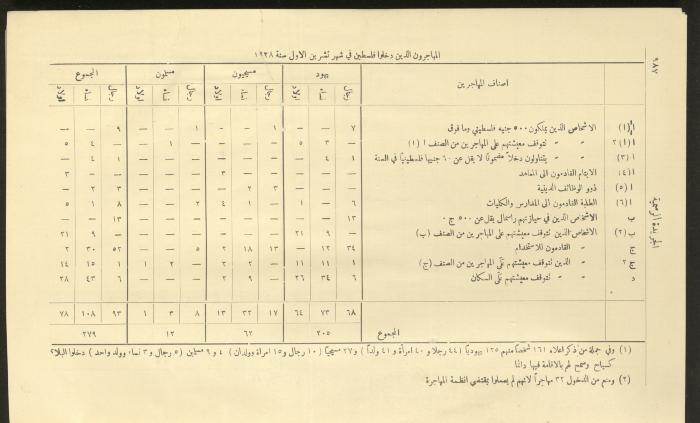 المهاجرون الذين دخلوا فلسطين في شهر تشرين الاول سنة ١٩٣٨
٩٨٧
الجريدة الرسمية
اصناف المهاجرين | يهود | مسيحيون | مسلمون | المجموع
رجال | نساء | اولاد | رجال | نساء | اولاد | رجال | نساء | اولاد | رجال | نساء | اولاد
ا (١) الاشخاص الذين يملكون ٥٠٠ جنيه فلسطيني وما فوق | ٧ | — | — | ١ | — | — | ١ | — | — | ٩ | — | —
ا (١) ٢ » » لتوقف معيشتهم على المهاجرين من الصنف ا (١) | — | ٣ | ٥ | — | — | — | — | ١ | — | — | ٤ | ٥
ا (٣) » » يتناولون دخلاً مضموناً لا يقل عن ٦٠ جنيهاً فلسطينياً في السنة | ١ | ٤ | — | — | — | — | — | — | — | ١ | ٤ | —
ا (٤) الايتام القادمون الى المعاهد | — | — | — | — | — | ٣ | — | — | — | — | — | ٣
ا (٥) ذوو الوظائف الدينية | — | — | — | ٣ | ٢ | — | — | — | — | ٣ | ٢ | —
ا (٦) الطلبة القادمون الى المدارس والكليات | ٦ | — | ١ | — | ١ | ٤ | ٢ | — | — | ٨ | ١ | ٥
ب الاشخاص الذين في حيازتهم راسمال يقل عن ٥٠٠ ج. | ١٣ | — | — | — | — | — | — | — | — | ١٣ | — | —
ب (٢) الاشخاص الذين لتوقف معيشتهم على المهاجرين من الصنف (ب) | — | ٩ | ٢١ | — | — | — | — | — | — | — | ٩ | ٢١
ج » القادمون للاستخدام | ٣٤ | ١٢ | — | ١٣ | ١٨ | ٢ | ٥ | — | — | ٥٢ | ٣٠ | ٢
ج ٢ » الذين لتوقف معيشتهم على المهاجرين من الصنف (ج) | ١ | ١١ | ١١ | — | ٢ | ٢ | — | ٢ | ١ | ١ | ١٥ | ١٤
د » » لتوقف معيشتهم على السكان | ٦ | ٣٤ | ٢٦ | — | ٩ | ٢ | — | — | — | ٦ | ٤٣ | ٢٨
٦٨ | ٧٣ | ٦٤ | ١٧ | ٣٢ | ١٣ | ٨ | ٣ | ١ | ٩٣ | ١٠٨ | ٧٨
المجموع | ٢٠٥ | ٦٢ | ١٢ | ٢٧٩
(١) وفي جملة من ذكر اعلاه ١٦١ شخصاً منهم ١٢٥ يهودياً (٤٤ رجلا و ٤٠ امرأة و ٤١ ولداً) و ٢٧ مسيحياً (١٠ رجال و ١٥ امرأة وولدان) و ٩ مسلمين (٥ رجال و ٣ نساء وولد واحد) دخلوا البلاد
كسياح وسمح لهم بالاقامة فيها دائماً
(٢) ومنع من الدخول ٣٢ مهاجراً لانهم لم يعملوا بمقتضى انظمة المهاجرة